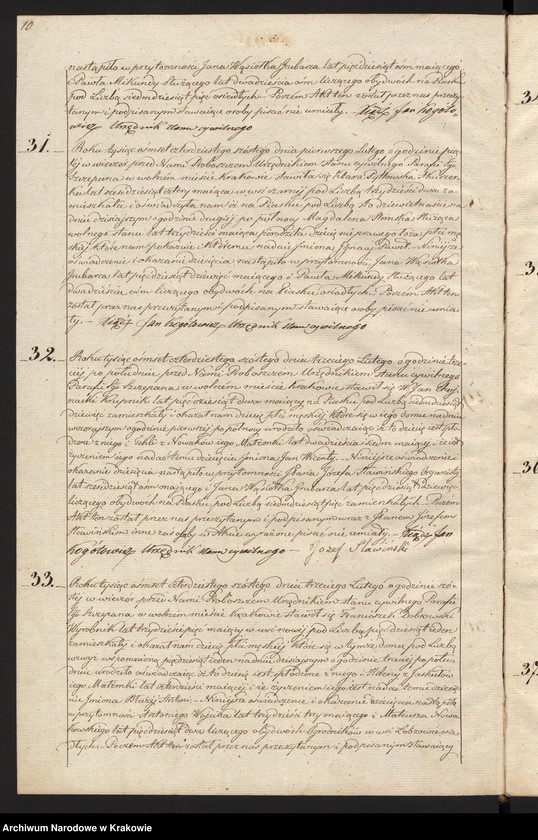 10
nastąpiło w przytomności Jana Wąsiołka Grubarza lat pięćdziesiąt ośm maiącego
i Pawła Mikundy służącego lat dwadzieścia ośm liczącego obydwóch na Piasku
pod Liczbą siedmdziesiąt pięć osiadłych. Poczem Akt ten został przez nas przeczy-
tanym i podpisanym stawaiące osoby pisać nie umiały. Xiądz Jan
Urzędnik stanu cywilnego
31.
Roku tysiąc ośmset czterdziestego szóstego dnia pierwszego Lutego o godzinie
w wieczór przed Nami Proboszczem Urzędnikiem Stanu Cywilnego Parafii Sgo
Szczepana w wolném mieście Krakowie stawiła się Klara
lat czterdzieści cztery maiąca w wsi czarnéj pod Liczbą trzydzieści dwa za-
mieszkała i oświadczyła nam iż na Piasku pod Liczbą sto dziewiętnaście na
dniu dzisiejszym o godzinie drugiéj po północy Magdalena Słomska służąca
wolnego stanu lat trzydzieści maiąca porodziła dziecię nie prawego łoża płci mę-
skiéj które nam pokazuie i któremu nadaie Imiona Ignacy Paweł. Niniejsze
oświadczenie i okazanie dziecięcia nastąpiło w przytomności Jana Wąsiołka
Grubarza lat pięćdziesiąt dziewięć maiącego i Pawła Mikundy służącego lat
dwadzieścia ośm liczącego obydwóch na Piasku osiadłych. Poczem Akt ten
został przez nas przeczytanym i podpisanym stawaiące osoby pisać nie umia-
ły. — Xiądz Jan Urzędnik stanu cywilnego
32.
Roku tysiąc ośmset czterdziestego szóstego dnia trzeciego Lutego o godzinie trze-
ciéj po południu przed Nami Proboszczem Urzędnikiem stanu cywilnego
Parafii Sgo Szczepana w wolném mieście Krakowie stawił się W. Jan
Krupnik lat pięćdziesiąt dwa maiący na Piasku pod Liczbą siedmdziesiąt
dziewięć zamieszkały i okazał nam dziecię płci męskiéj które się w iego domu na dniu
wczorajszym o godzinie pierwszéj po północy urodziło oświadczaiąc iż to dziecię iest spło-
dzone z niego i Tekli z Nowaków iego Małżonki lat dwadzieścia siedm maiącéj i że
życzeniem iego nadać temu dziecięciu Imiona Jan Wicenty. — Niniejsze oświadczenie i
okazanie dziecięcia nastąpiło w przytomności Pana Józefa Stawińskiego Organisty
lat sześćdziesiąt ośm maiącego i Jana Wąsiołka Grubarza lat pięćdziesiąt dziewięć
liczącego obydwóch na Piasku pod Liczbą siedmdziesiąt pięć zamieszkałych. Poczem
Akt ten został przez nas przeczytanym i podpisanym wraz z Panem Józefem
Stawińskim inne zaś osoby w Akcie wyrażone pisać nie umiały. — Xiądz Jan
Urzędnik stanu cywilnego — Józef Stawiński
33.
Roku tysiąc ośmset czterdziestego szóstego dnia trzeciego Lutego o godzinie szó-
stéj w wieczór przed Nami Proboszczem Urzędnikiem stanu cywilnego Parafii
Sgo Szczepana w wolném mieście Krakowie stawił się Franciszek Dobrowski
Wyrobnik lat trzydzieści pięć maiący w wsi nowéj pod Liczbą pięćdziesiąt ieden
zamieszkały i okazał nam dziecię płci męskiéj które się w tymże domu pod Liczbą
wzwyż wspomnioną pięćdziesiąt ieden na dniu dzisiejszym o godzinie trzeciéj po połu-
dniu urodziło oświadczaiąc iż to dziecię iest spłodzone z niego i Heleny z
iego Małżonki lat czterdzieści maiącéj i że życzeniem iego iest nadać temu dziecię-
ciu Imiona Błażej Antoni. — Niniejsze oświadczenie i okazanie dziecięcia nastąpiło
w przytomności Antoniego Wójcika lat trzydzieści trzy maiącego i Mateusza Nowa-
kowskiego lat pięćdziesiąt dwa liczącego obydwóch Ogrodników w wsi Łobzowie osia-
dłych. Poczem Akt ten został przez nas przeczytanym i podpisanym stawaiący
37.
Archiwum Narodowe w Krakowie